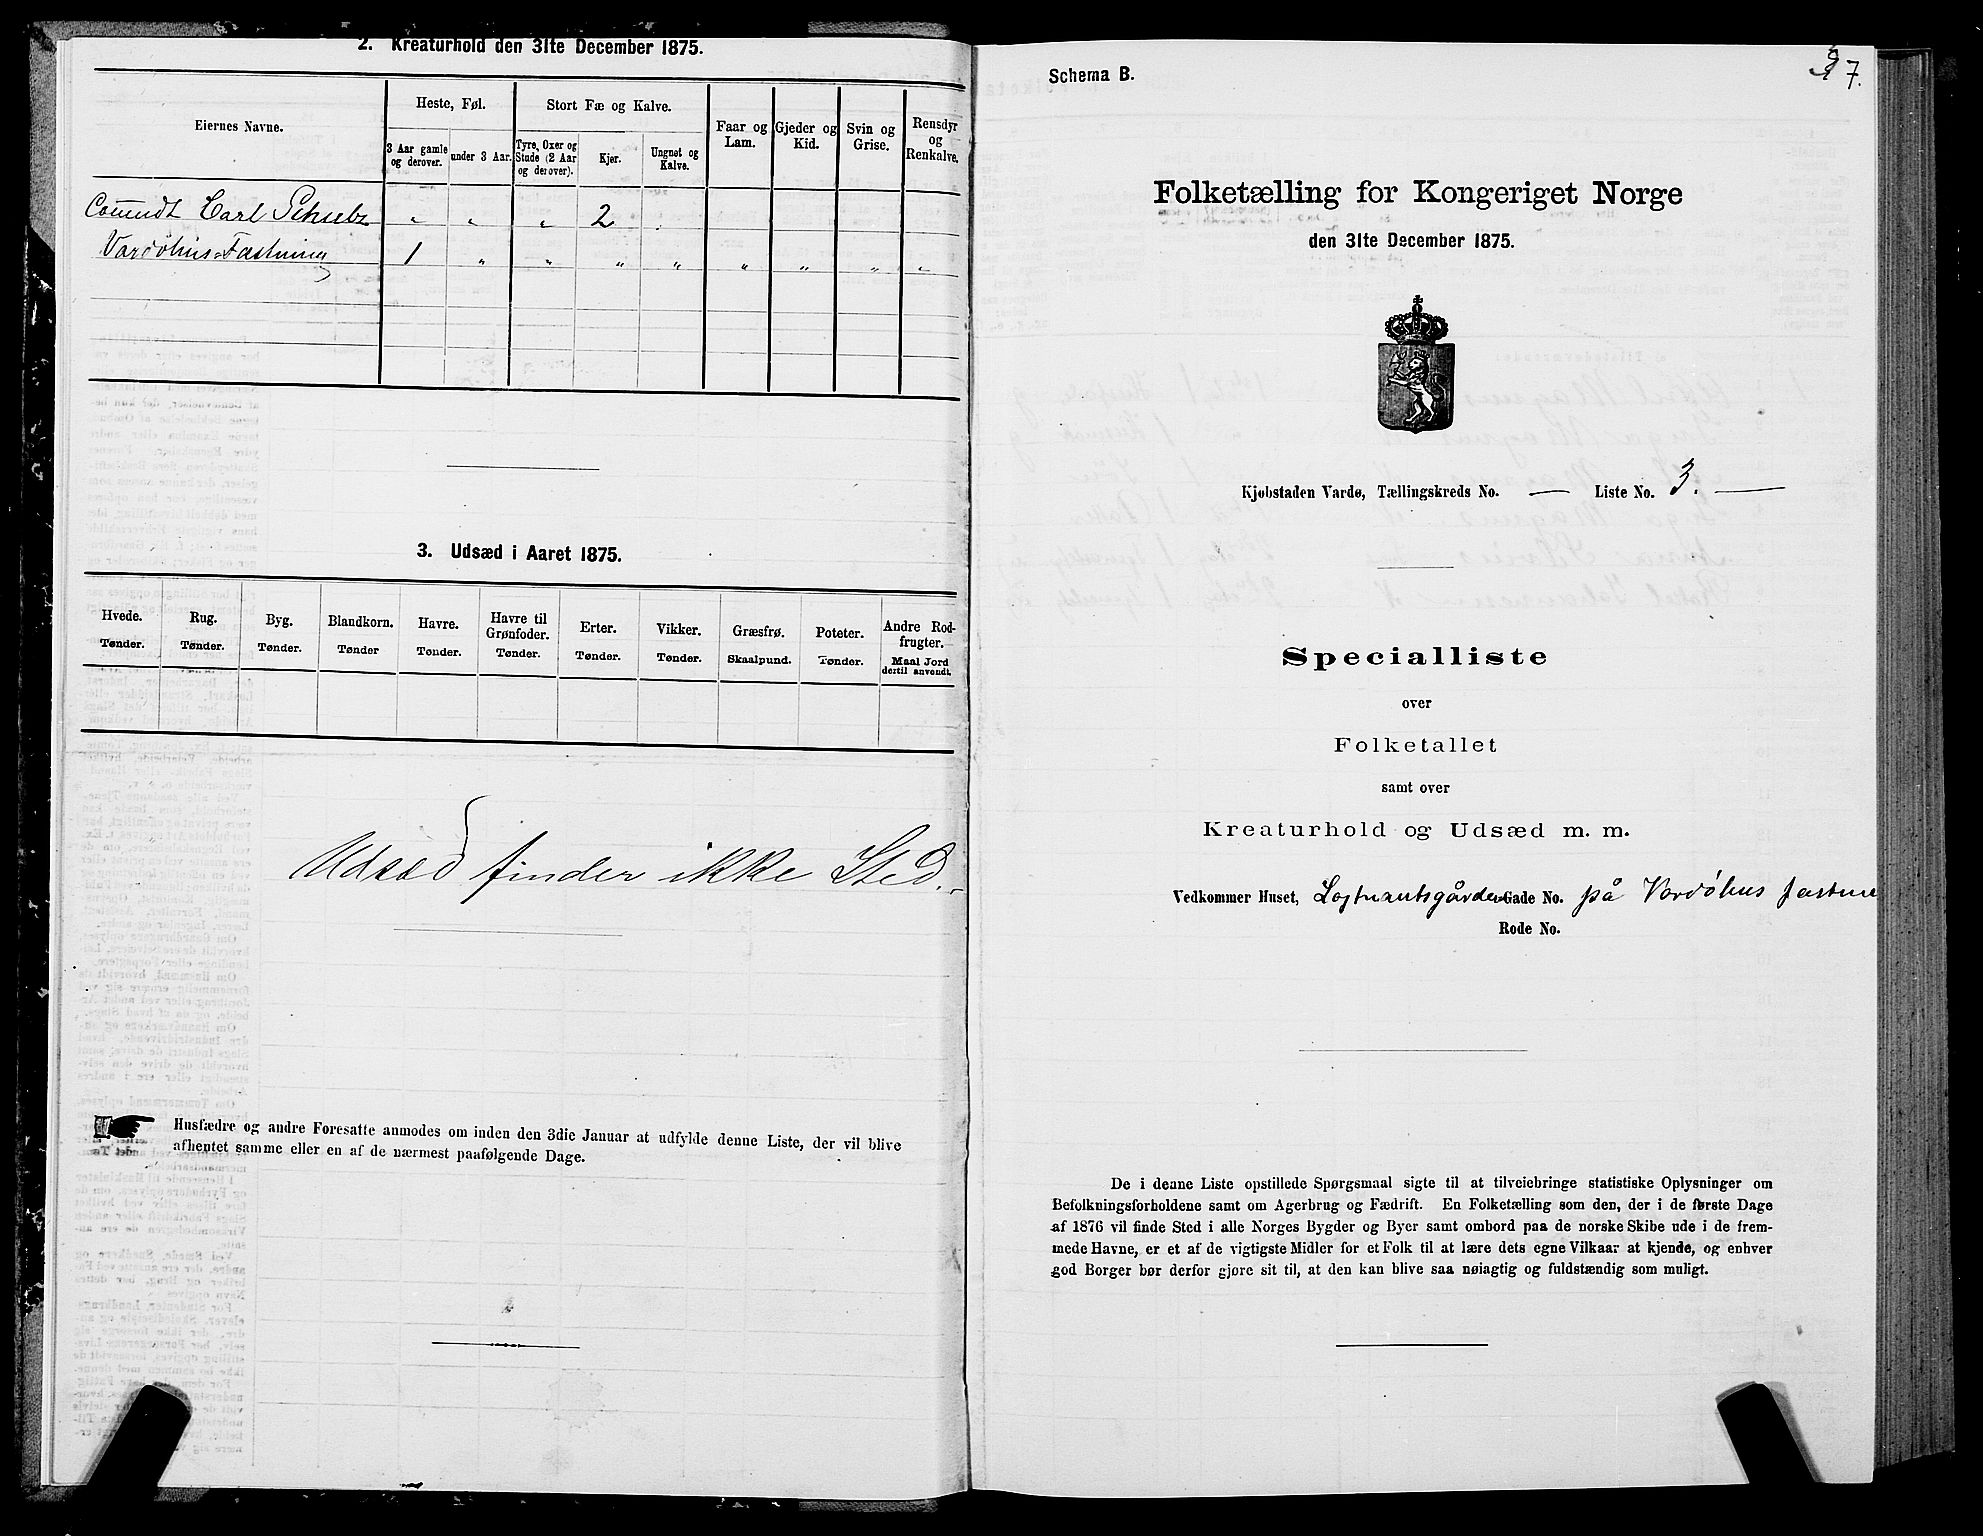 2. Kreaturhold den 31te December 1875.
Eiernes Navne.
Heste, Føl.
Stort Fæ og Kalve.
Faar og Lam.
Gjeder og Kid.
Svin og Grise.
Rensdyr og Renkalve.
3 Aar gamle og derover.
under 3 Aar.
Tyre, Oxer og Stude (2 Aar og derover).
Kjør.
Ungnøt og Kalve.
Carl 〃 〃 〃 2
Vardøhus Fæstning 1 〃 〃 〃 〃 〃 〃 〃 〃
3. Udsæd i Aaret 1875.
Hvede. Tønder.
Rug. Tønder.
Byg. Tønder.
Blandkorn. Tønder
Havre. Tønder.
Havre til Grønfoder. Tønder.
Erter. Tønder.
Vikker. Tønder.
Græsfrø. Skaalpund.
Poteter. Tønder.
Andre Rodfrugter. Maal Jord dertil anvendt.
Udsæd finder ikke Sted.
Husfædre og andre Foresatte anmodes om inden den 3die Januar at udfylde denne Liste, der vil blive
afhentet samme eller en af de nærmest paafølgende Dage.
Schema B.
7.
Folketælling for Kongeriget Norge
den 31te December 1875.
Kjøbstaden Vardø, Tællingskreds No. — Liste No. 3. —
Specialliste
over
Folketallet
samt over
Kreaturhold og Udsæd m. m.
Vedkommer Huset, Gade No. på Vardøhus
Rode No.
De i denne Liste opstillede Spørgsmaal sigte til at tilveiebringe statistiske Oplysninger om
Befolkningsforholdene samt om Agerbrug og Fædrift. En Folketælling som den, der i de første Dage
af 1876 vil finde Sted i alle Norges Bygder og Byer samt ombord paa de norske Skibe ude i de frem-
mede Havne, er et af de vigtigste Midler for et Folk til at lære dets egne Vilkaar at kjende, og enhver
god Borger bør derfor gjøre sit til, at den kan blive saa nøiagtig og fuldstændig som muligt.